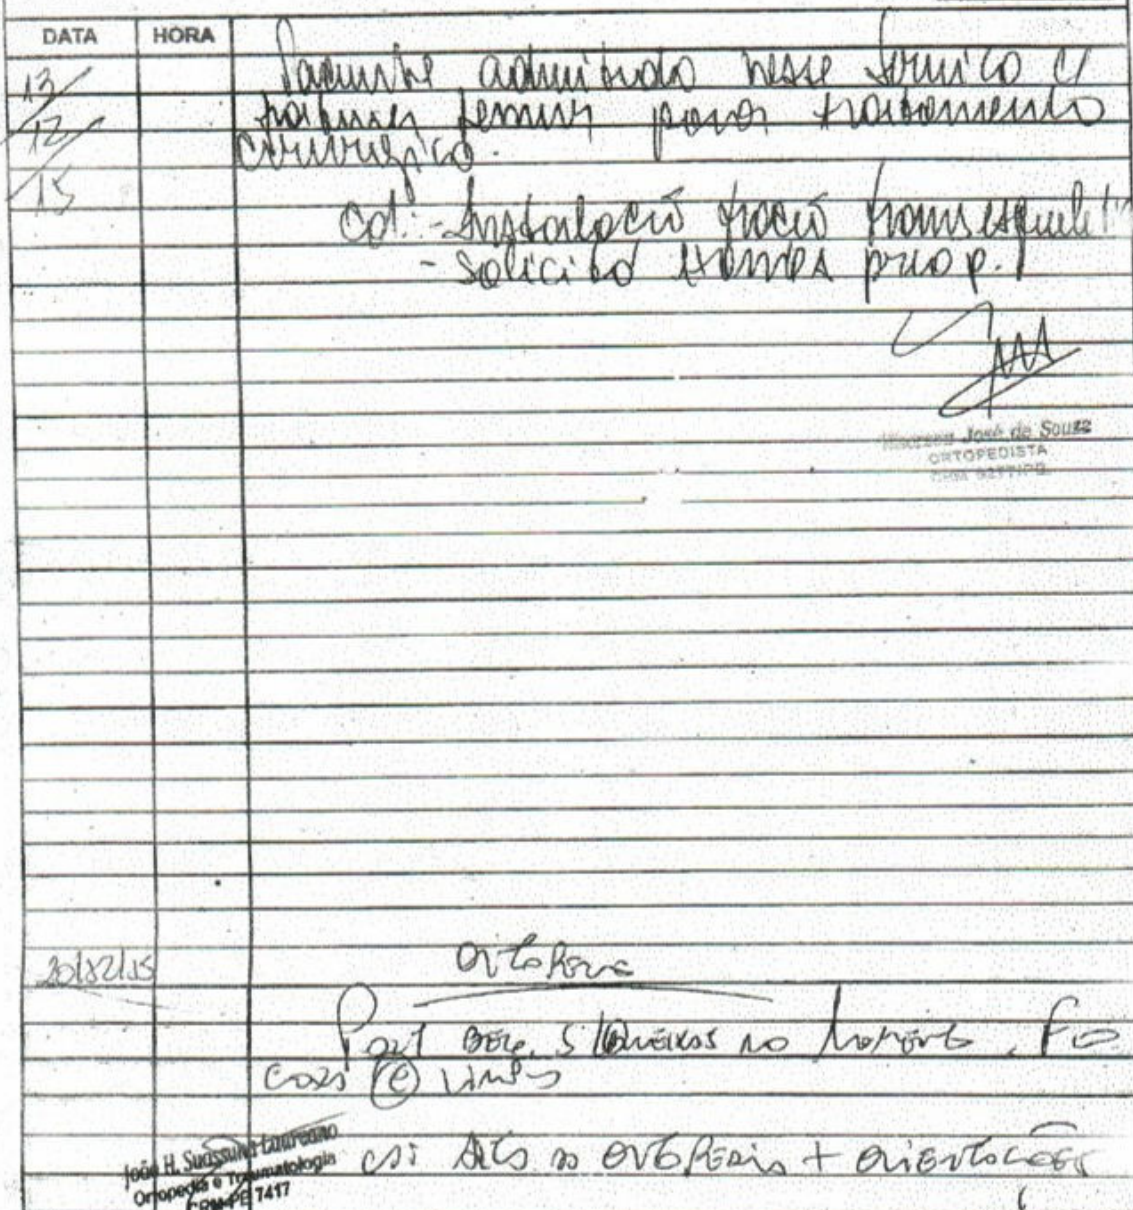 DATA HORA
13/ Paciente admitido nesse serviço c/
12/ fratura femur para tratamento
15 cirurgico.
cd: - Instalação tração transesquelet
- Solicito exames pré op.
José de Souza
ORTOPEDISTA
20/12/15 Ortopedia
Pact bem, s/ queixas no momento. F.O
com © limpo
cd: Alta da ortopedia + orientações
João H. Suassuna Laureano
Ortopedia e Traumatologia
CRM-PE 7417